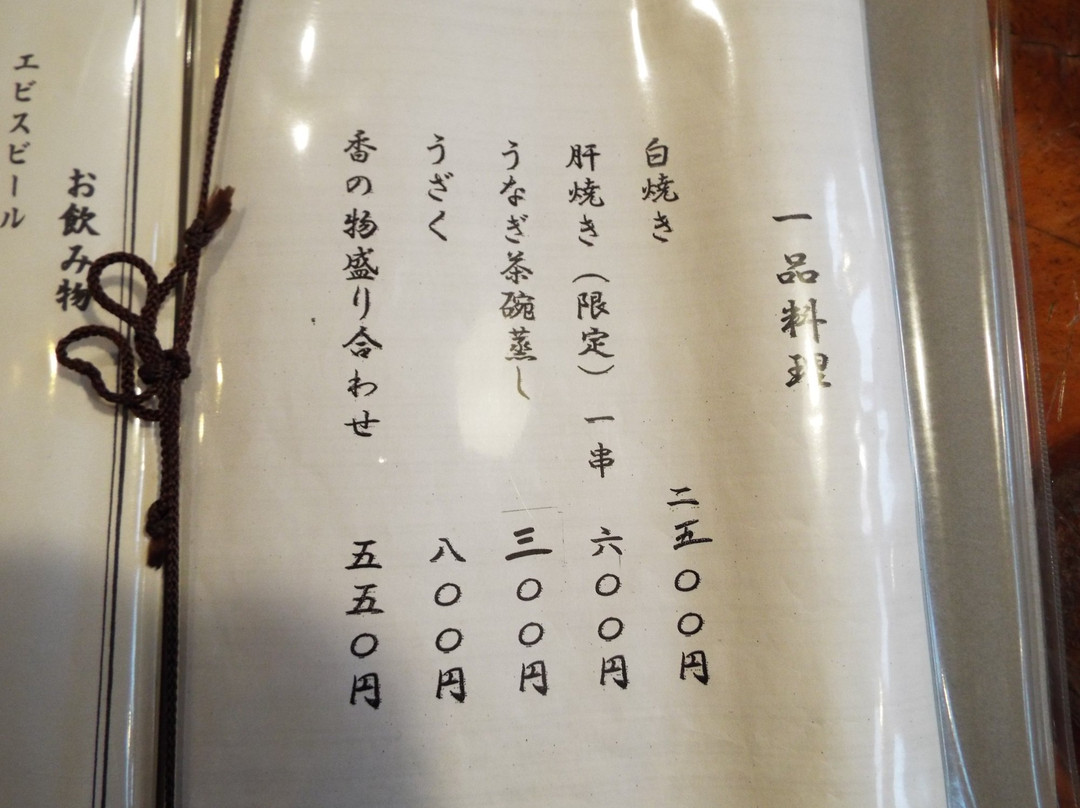 一品料理
白焼き 二五〇〇円
肝焼き（限定） 一串 六〇〇円
うなぎ茶碗蒸し 三〇〇円
うざく 八〇〇円
香の物盛り合わせ 五五〇円
お飲み物
エビスビール